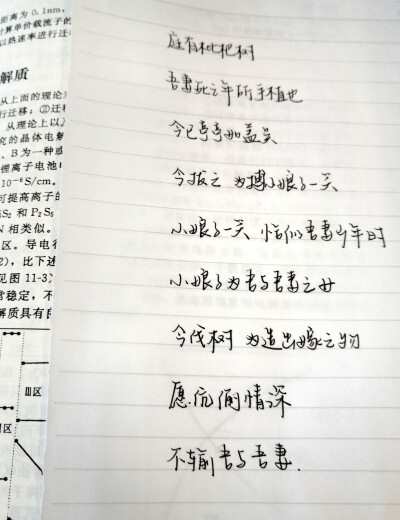 距离为 0.1nm,
计算单价载流子的
以热速率进行迁
解质
从上面的理论
行迁移；②迁移
从理论上以
究的晶体电解
、B为一种或
锂离子电池
10⁻⁶S/cm。
可提高离子的
iS₂ 和 P₂S₅
N 相类似。
区。导电行
2)，比下述
见图 11-3)
常稳定，不
解质具有良
Ⅲ区
区
庭有枇杷树
吾妻死之年所手植也
今已亭亭如盖矣
今拔之 为搏小娘子一笑
小娘子一笑 恰似吾妻少年时
小娘子为吾与吾妻之女
今伐树 为造出嫁之物
愿伉俪情深
不输吾与吾妻.